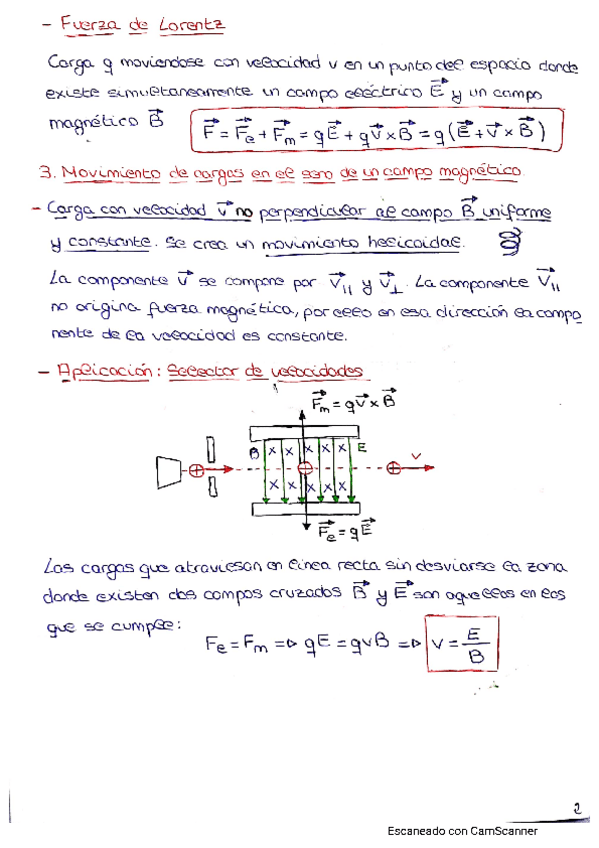 - Fuerza de Lorentz
Carga q moviendose con velocidad v en un punto del espacio donde
existe simultaneamente un campo eléctrico E⃗ y un campo
magnético B⃗ F⃗ = F⃗e + F⃗m = qE⃗ + qv⃗ × B⃗ = q(E⃗ + v⃗ × B⃗)
3. Movimiento de cargas en el seno de un campo magnético
- Carga con velocidad v⃗ no perpendicular al campo B⃗ uniforme
y constante. Se crea un movimiento helicoidal.
La componente v⃗ se compone por v⃗∥ y v⃗⊥. La componente v⃗∥
no origina fuerza magnética, por ello en esa dirección la compo
nente de la velocidad es constante.
- Aplicación: Selector de velocidades
F⃗m = qv⃗ × B⃗
B × × × × × E
+ + + v
× × × × ×
F⃗e = qE⃗
Las cargas que atraviesan en línea recta sin desviarse la zona
donde existen dos campos cruzados B⃗ y E⃗ son aquellas en las
que se cumple:
Fe = Fm ⇒ qE = qvB ⇒ v = E/B
2
Escaneado con CamScanner